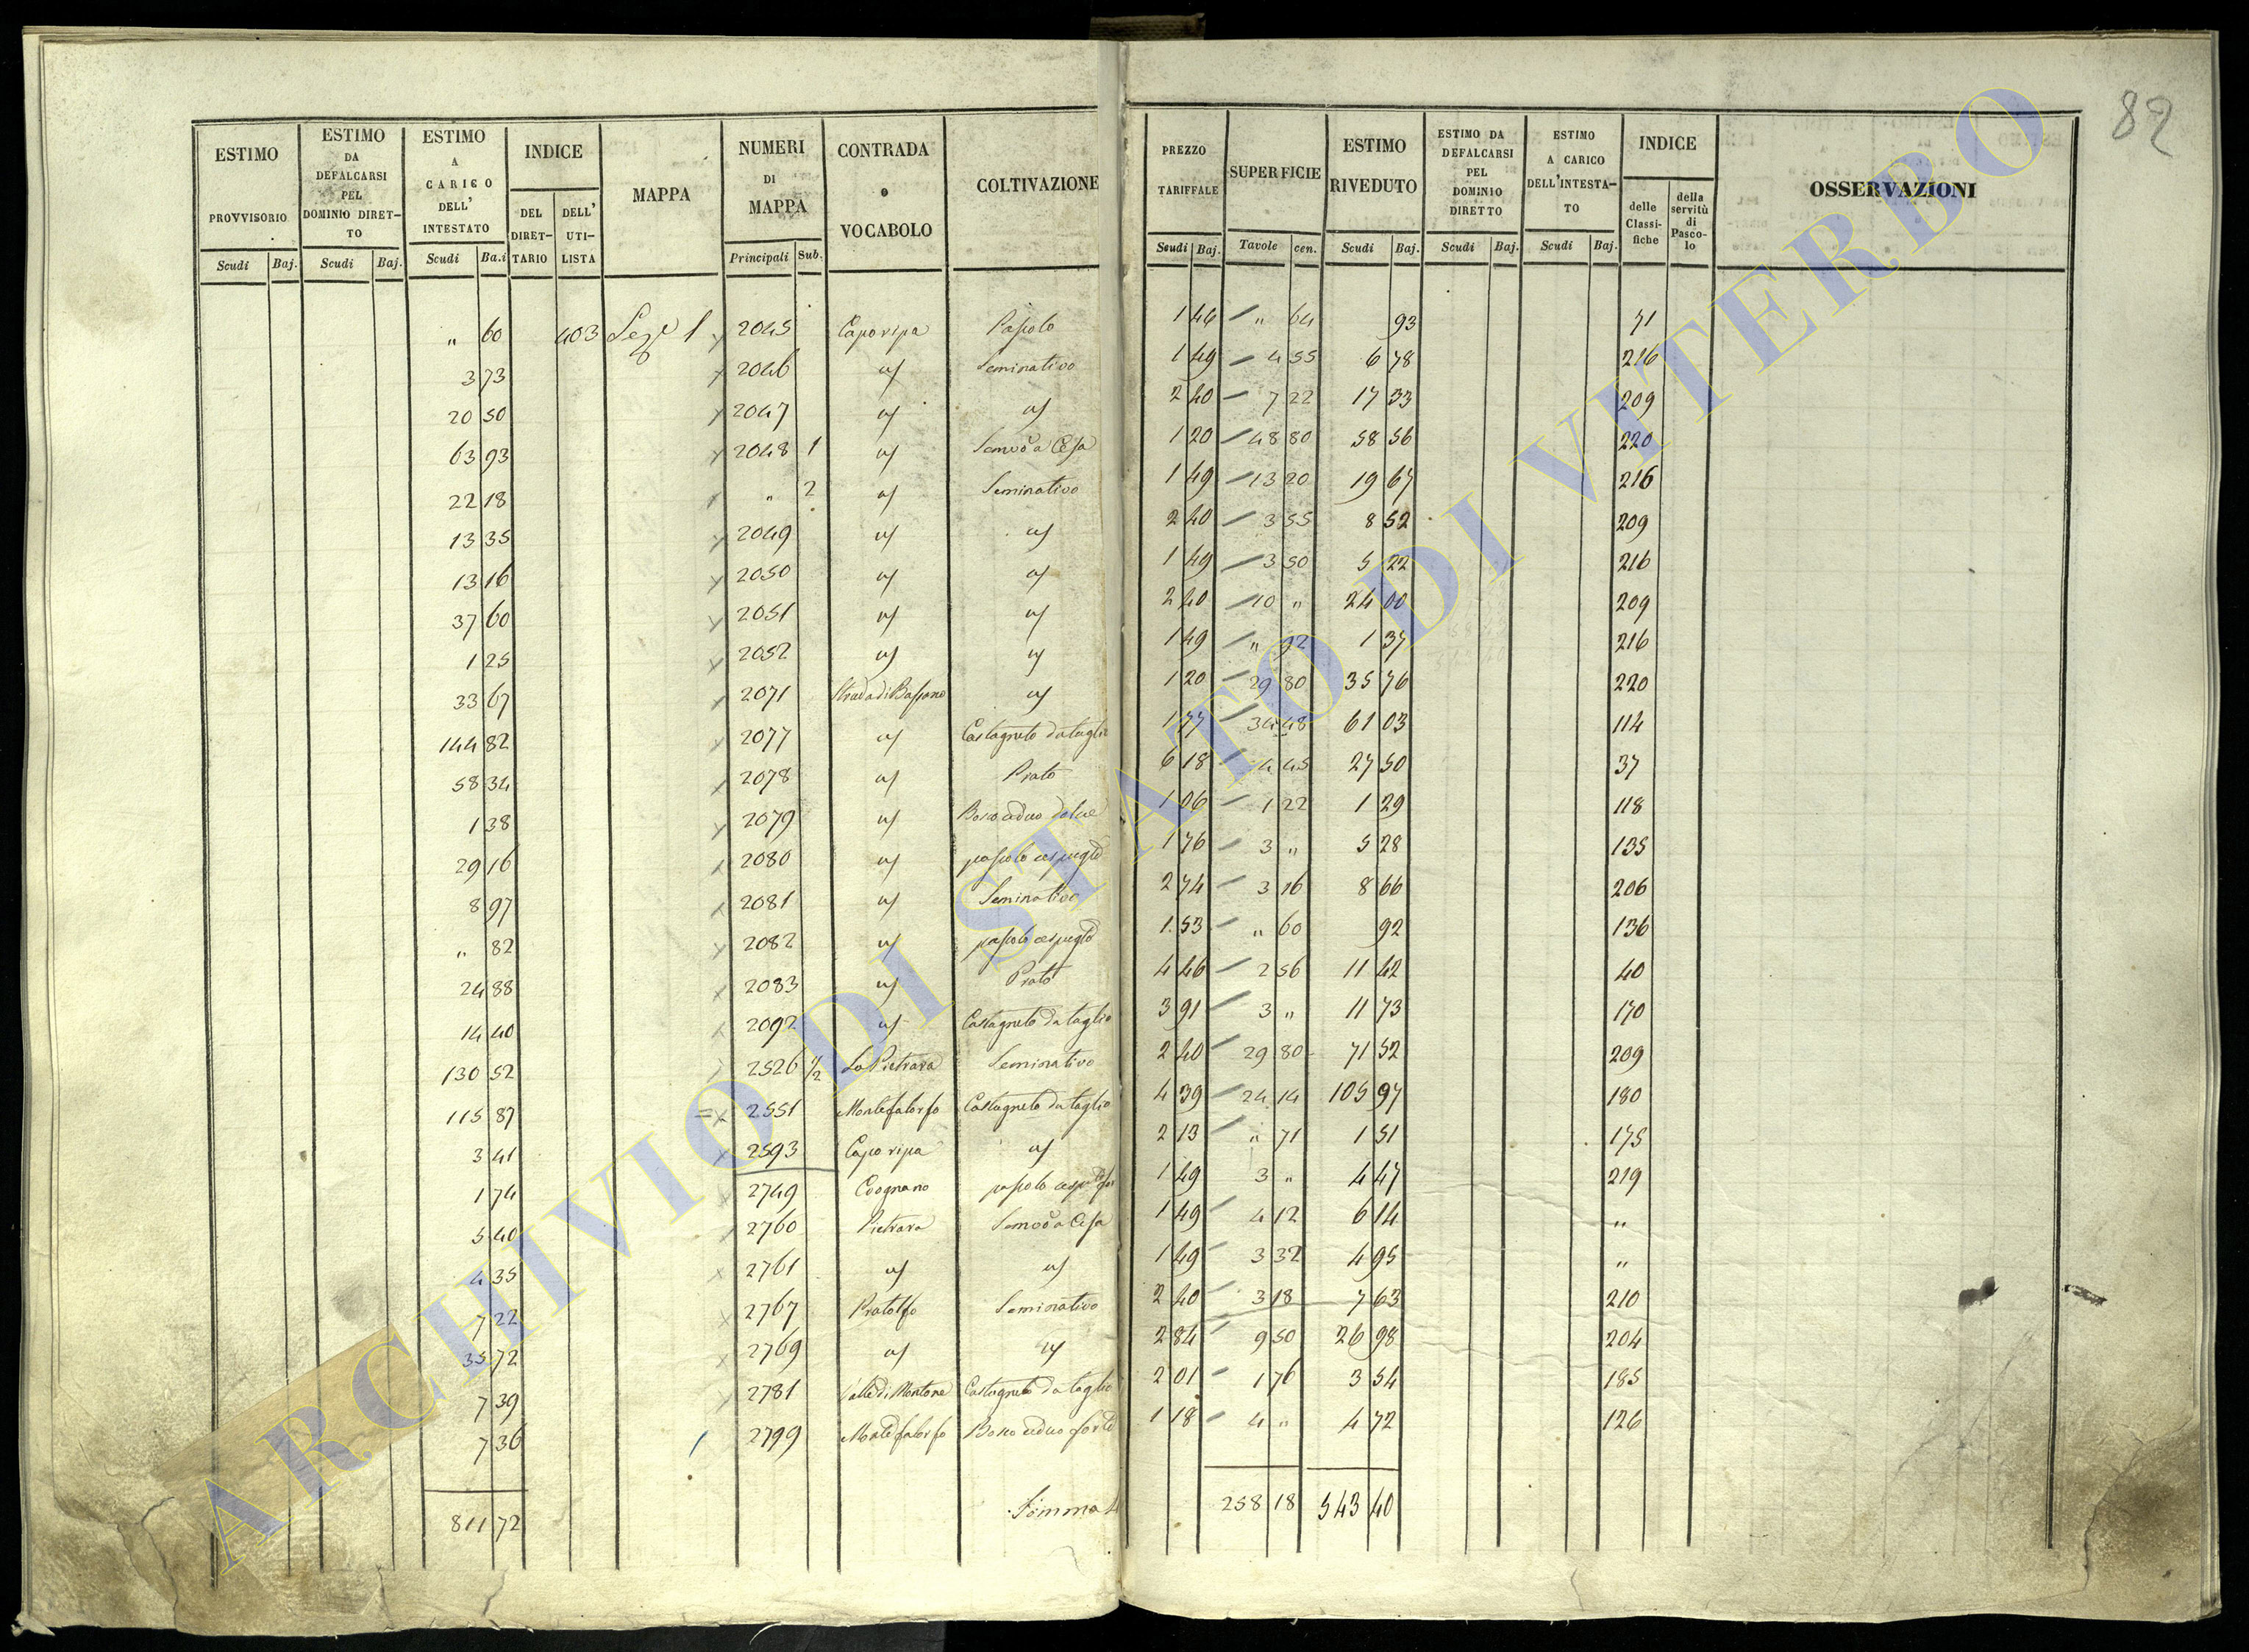 82
ESTIMO PROVVISORIO | ESTIMO DA DEFALCARSI PEL DOMINIO DIRET-TO | ESTIMO A CARICO DELL' INTESTATO | INDICE DEL DIRET-TARIO | DELL' UTI-LISTA | MAPPA | NUMERI DI MAPPA | CONTRADA o VOCABOLO | COLTIVAZIONE | PREZZO TARIFFALE | SUPERFICIE | ESTIMO RIVEDUTO | ESTIMO DA DEFALCARSI PEL DOMINIO DIRETTO | ESTIMO A CARICO DELL'INTESTA-TO | INDICE delle Classi-fiche | della servitù di Pasco-lo | OSSERVAZIONI
Scudi | Baj. | Scudi | Baj. | Scudi | Ba.i | Principali | Sub. | Scudi | Baj. | Tavole | cen. | Scudi | Baj. | Scudi | Baj. | Scudi | Baj.
" 60 403 Sez.e 1 2045 Caporipa Pascolo 1 46 " 64 93 71
3 73 2046 Seminativo 1 49 4 55 6 78 216
20 50 2047 2 40 7 22 17 33 209
63 93 2048 1 1 20 48 80 58 56 220
22 18 " 2 Seminativo 1 49 13 20 19 67 216
13 35 2049 2 40 3 55 8 52 209
13 16 2050 1 49 3 50 5 22 216
37 60 2051 2 40 10 " 24 00 209
1 25 2052 1 49 " 92 1 37 216
33 67 2071 Strada di Bassano 1 20 29 80 35 76 220
144 82 2077 Castagneto da taglio 1 77 34 48 61 03 114
58 34 2078 Prato 6 18 4 45 27 50 37
1 38 2079 Bosco ceduo dolce 1 06 1 22 1 29 118
29 16 2080 pascolo cespuglto 1 76 3 " 5 28 135
8 97 2081 Seminativo 2 74 3 16 8 66 206
" 82 2082 pascolo cespuglto 1 53 " 60 92 136
24 88 2083 Prato 4 46 2 56 11 42 40
14 40 2092 Castagneto da taglio 3 91 3 " 11 73 170
130 52 2526 1/2 La Pietrara Seminativo 2 40 29 80 71 52 209
115 87 2551 Montefalorfo Castagneto da taglio 4 39 24 14 105 97 180
3 41 2593 Caporipa 2 13 " 71 1 51 175
1 74 2749 pascolo 1 49 3 " 4 47 219
5 40 2760 Pietrara 1 49 4 12 6 14 "
4 35 2761 1 49 3 32 4 95 "
7 22 2767 Seminativo 2 40 3 18 7 63 210
35 72 2769 2 84 9 50 26 98 204
7 39 2781 Valle di Montone Castagneto da taglio 2 01 1 76 3 54 185
7 36 2799 Montefalorfo Bosco ceduo forte 1 18 4 " 4 72 126
811 72 Somma 258 18 543 40
ARCHIVIO DI STATO DI VITERBO